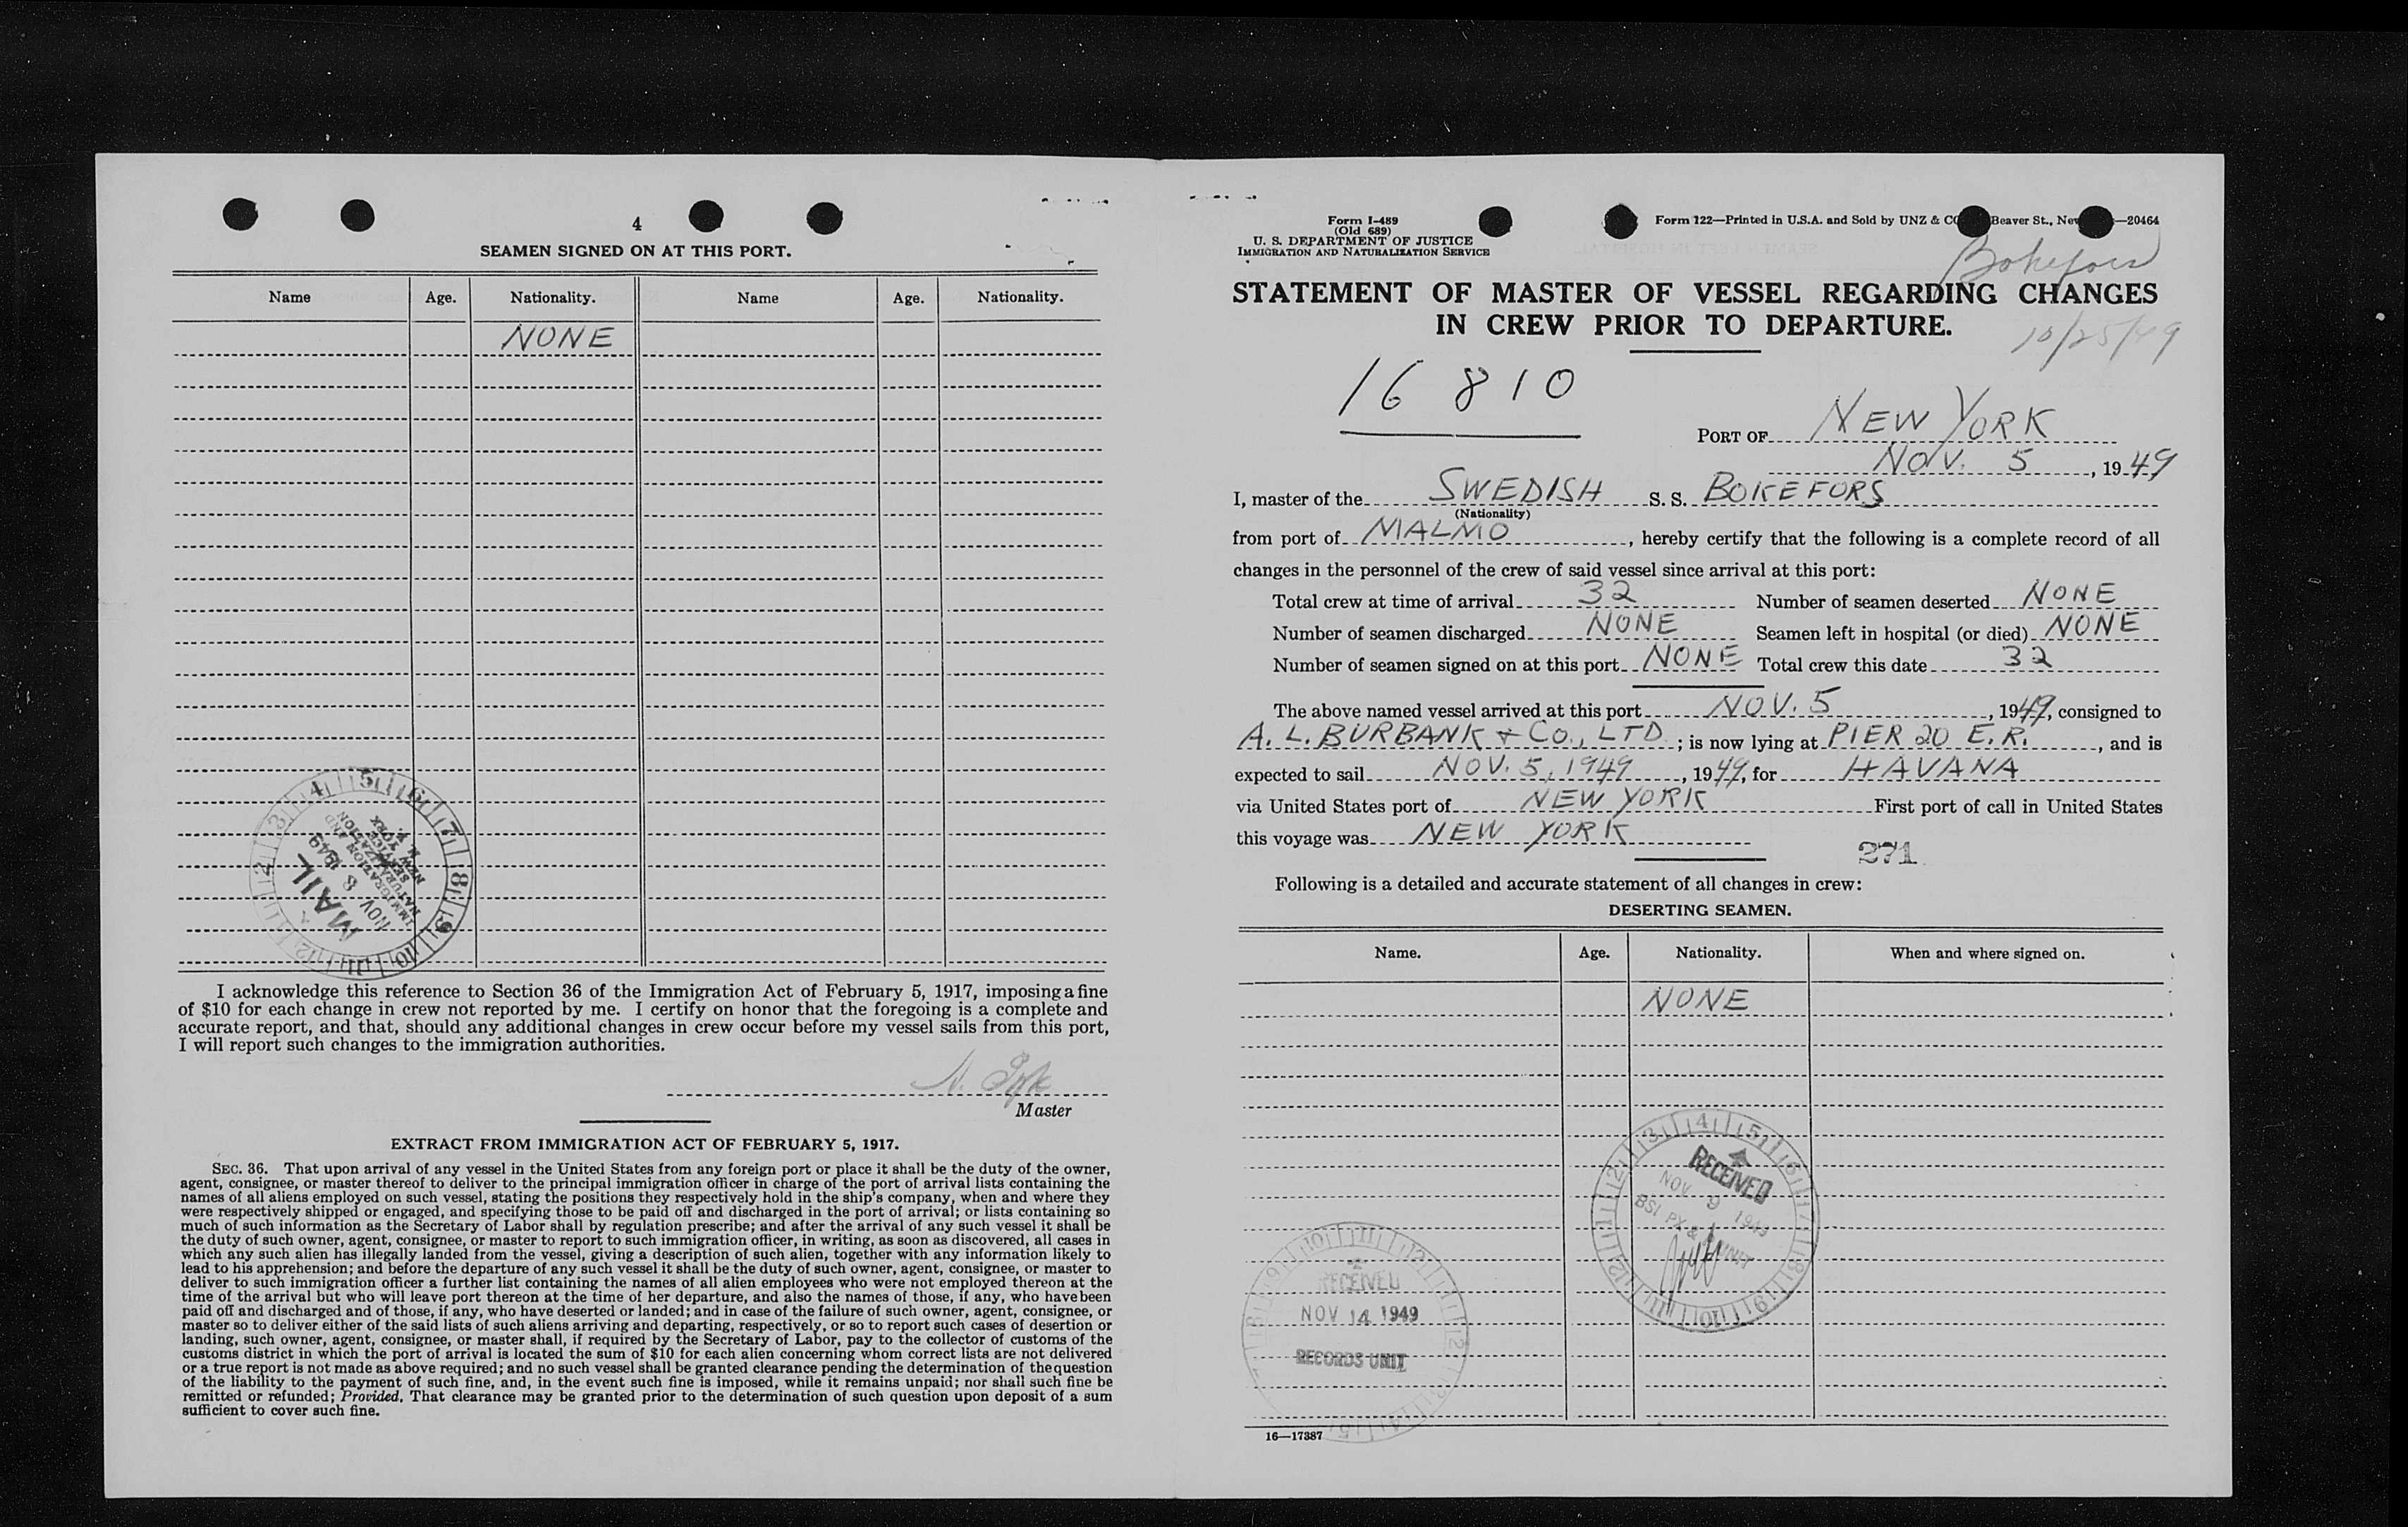 4
SEAMEN SIGNED ON AT THIS PORT.
Name Age. Nationality. Name Age. Nationality.
NONE
MAIL
NOV 8 1949
IMMIGRATION AND
NATURALIZATION
SERVICE
NEW YORK
N. Y.
I acknowledge this reference to Section 36 of the Immigration Act of February 5, 1917, imposing a fine
of $10 for each change in crew not reported by me. I certify on honor that the foregoing is a complete and
accurate report, and that, should any additional changes in crew occur before my vessel sails from this port,
I will report such changes to the immigration authorities.
Master
EXTRACT FROM IMMIGRATION ACT OF FEBRUARY 5, 1917.
SEC. 36. That upon arrival of any vessel in the United States from any foreign port or place it shall be the duty of the owner,
agent, consignee, or master thereof to deliver to the principal immigration officer in charge of the port of arrival lists containing the
names of all aliens employed on such vessel, stating the positions they respectively hold in the ship's company, when and where they
were respectively shipped or engaged, and specifying those to be paid off and discharged in the port of arrival; or lists containing so
much of such information as the Secretary of Labor shall by regulation prescribe; and after the arrival of any such vessel it shall be
the duty of such owner, agent, consignee, or master to report to such immigration officer, in writing, as soon as discovered, all cases in
which any such alien has illegally landed from the vessel, giving a description of such alien, together with any information likely to
lead to his apprehension; and before the departure of any such vessel it shall be the duty of such owner, agent, consignee, or master to
deliver to such immigration officer a further list containing the names of all alien employees who were not employed thereon at the
time of the arrival but who will leave port thereon at the time of her departure, and also the names of those, if any, who have been
paid off and discharged and of those, if any, who have deserted or landed; and in case of the failure of such owner, agent, consignee, or
master so to deliver either of the said lists of such aliens arriving and departing, respectively, or so to report such cases of desertion or
landing, such owner, agent, consignee, or master shall, if required by the Secretary of Labor, pay to the collector of customs of the
customs district in which the port of arrival is located the sum of $10 for each alien concerning whom correct lists are not delivered
or a true report is not made as above required; and no such vessel shall be granted clearance pending the determination of the question
of the liability to the payment of such fine, and, in the event such fine is imposed, while it remains unpaid; nor shall such fine be
remitted or refunded; Provided, That clearance may be granted prior to the determination of such question upon deposit of a sum
sufficient to cover such fine.
Form I-489
(Old 689)
U. S. DEPARTMENT OF JUSTICE
IMMIGRATION AND NATURALIZATION SERVICE
Form 122—Printed in U.S.A. and Sold by UNZ & CO Beaver St., New —20464
Bokefors
STATEMENT OF MASTER OF VESSEL REGARDING CHANGES
IN CREW PRIOR TO DEPARTURE.
10/25/49
16 810
PORT OF NEW YORK
NOV. 5, 1949
I, master of the SWEDISH S. S. BOKEFORS
(Nationality)
from port of MALMO, hereby certify that the following is a complete record of all
changes in the personnel of the crew of said vessel since arrival at this port:
Total crew at time of arrival 32 Number of seamen deserted NONE
Number of seamen discharged NONE Seamen left in hospital (or died) NONE
Number of seamen signed on at this port NONE Total crew this date 32
The above named vessel arrived at this port NOV. 5, 1949, consigned to
A. L. BURBANK & CO., LTD.; is now lying at PIER 20 E. R., and is
expected to sail NOV. 5, 1949, 1949, for HAVANA
via United States port of NEW YORK First port of call in United States
this voyage was NEW YORK
271
Following is a detailed and accurate statement of all changes in crew:
DESERTING SEAMEN.
Name. Age. Nationality. When and where signed on.
NONE
RECEIVED
NOV 9 1949
BSI PX & UNIT
RECEIVED
NOV 14 1949
RECORDS UNIT
16—17387